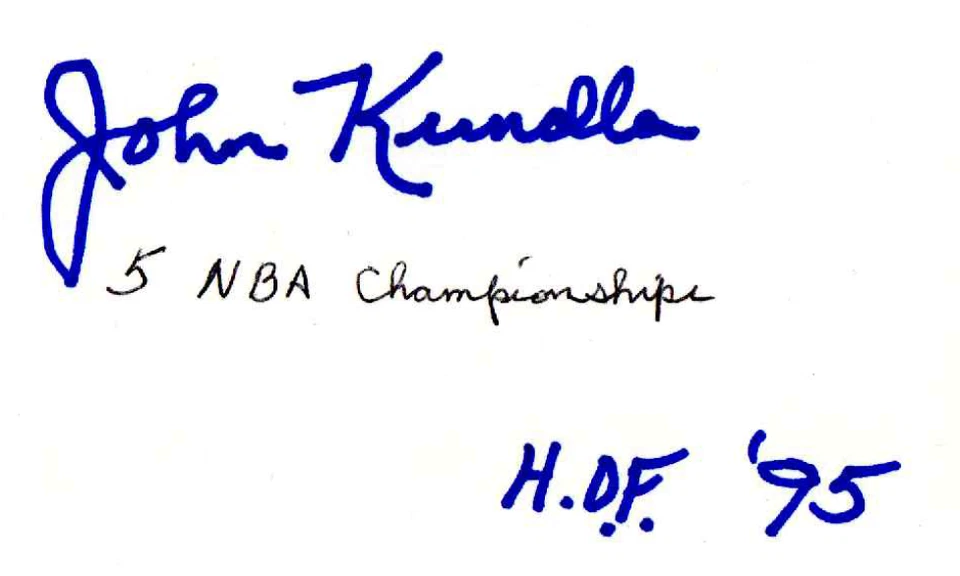 John Kundla
5 NBA Championships
H.O.F. '95